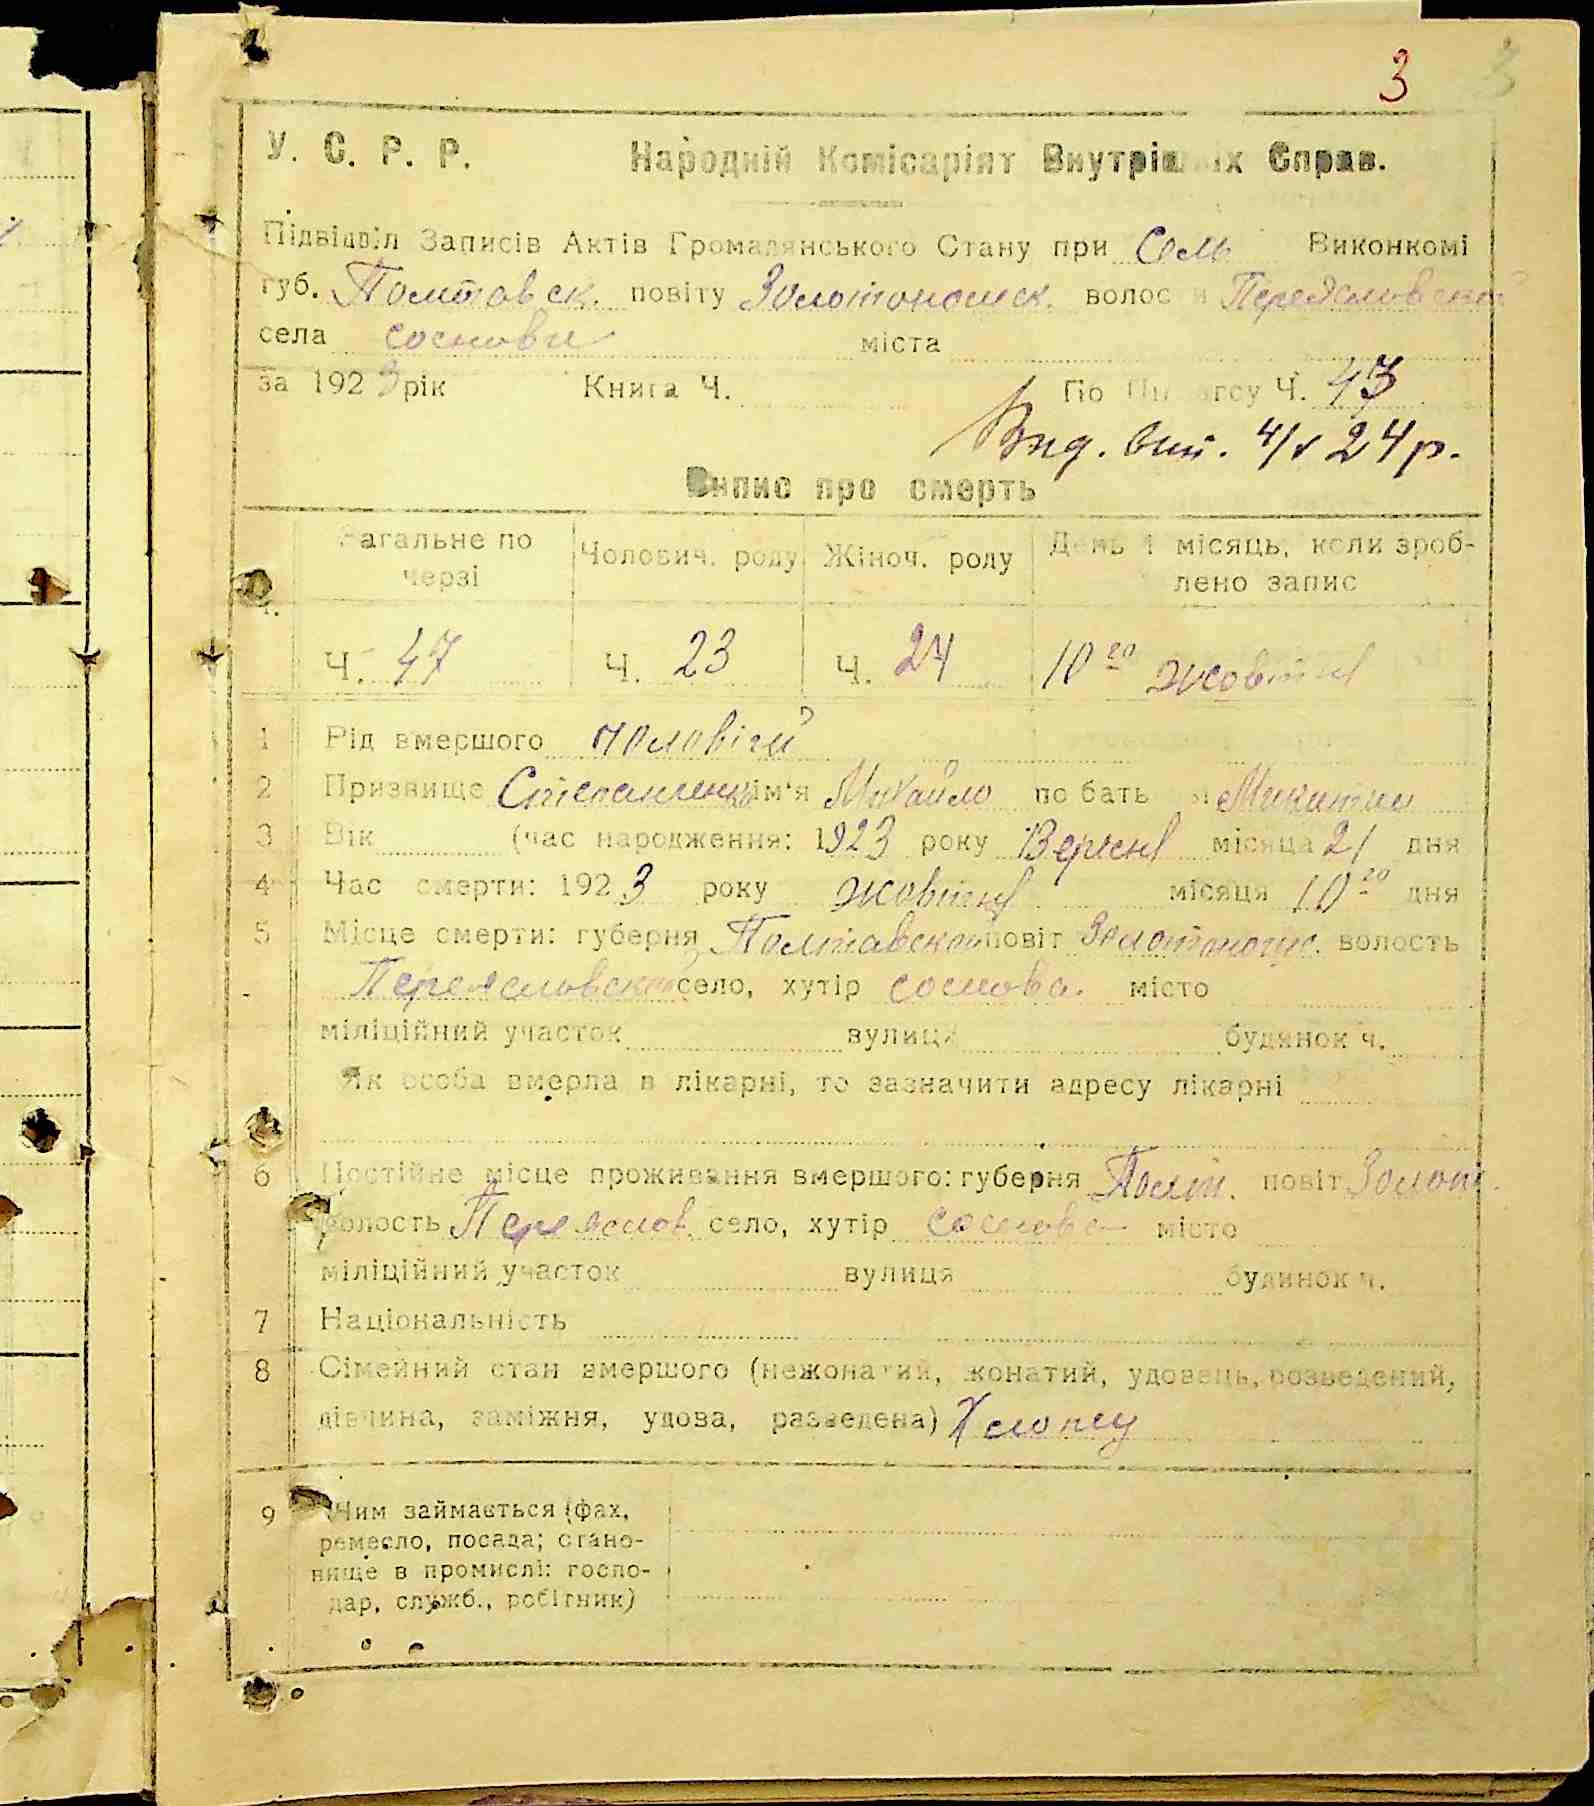 3
У. С. Р. Р. Народній Комісаріят Внутрішніх Справ.
Підвідділ Записів Актів Громадянського Стану при Сель Виконкомі
губ. Полтовск. повіту Золотоношск. волости Переяславской
села соснови міста
за 1923 рік Книга Ч. По Ч. 47
Вид. вип. 4/V 24 р.
Випис про смерть
Загальне по черзі Чолович. роду Жіноч. роду День і місяць, коли зроб-
лено запис
Ч. 47 Ч. 23 Ч. 24 10го жовтня
1 Рід вмершого чоловічий
2 Призвище Степаненко ім'я Михайло по бать Микитич
3 Вік (час народження: 1923 року Вересня місяца 21 дня
4 Час смерти: 1923 року жовтня місяця 10го дня
5 Місце смерти: губерня Полтавской повіт Золотонош. волость
Переясловской село, хутір соснова. місто
міліційний участок вулиця будинок ч.
Як особа вмерла в лікарні, то зазначити адресу лікарні
6 Постійне місце проживання вмершого: губерня Полт. повіт Золот.
волость Переяслов. село, хутір соснова місто
міліційний участок вулиця будинок ч.
7 Національність
8 Сімейний стан вмершого (нежонатий, жонатий, удовець, розведений,
дівчина, заміжня, удова, разведена)
9 Чим займається (фах,
ремесло, посада; стано-
вище в промислі: госпо-
дар, служб., робітник)